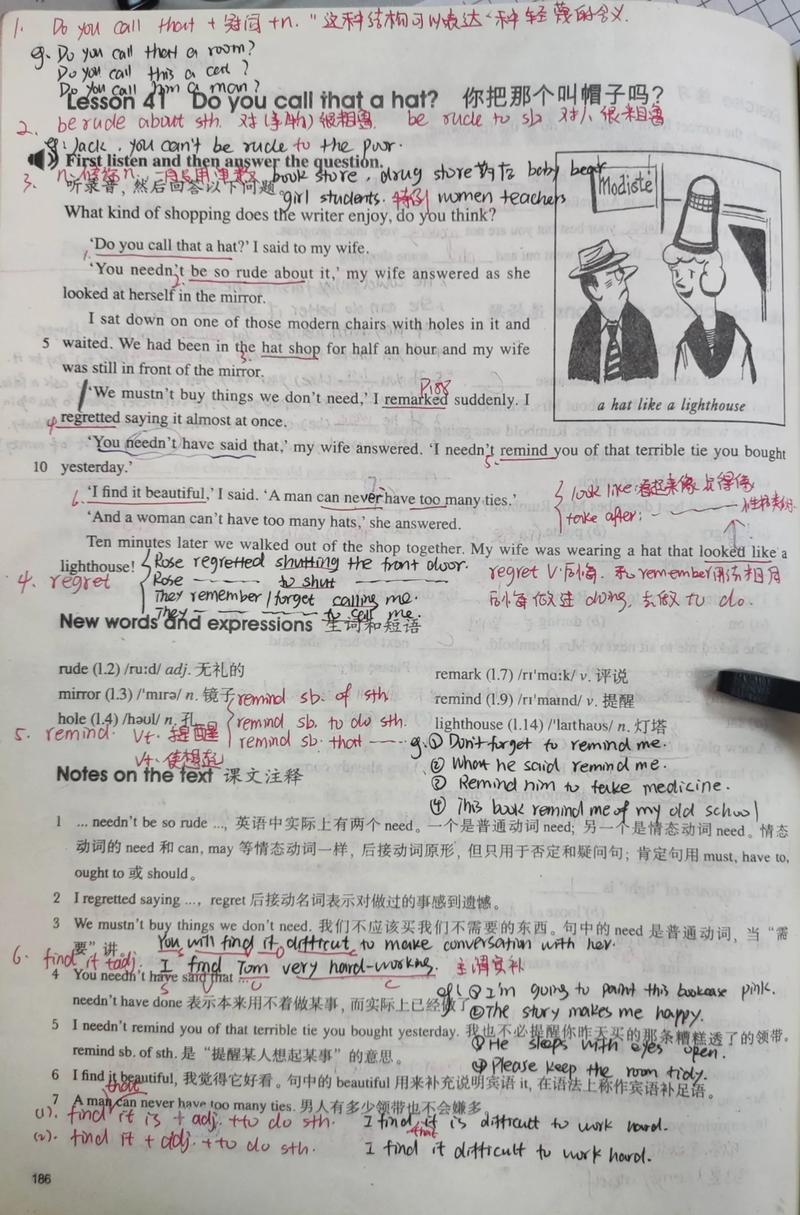 1. Do you call that + 冠词 + n. "这种结构可以表达一种轻蔑的含义.
eg. Do you call that a room?
Do you call this a cat?
Do you call him a man?
Lesson 41 Do you call that a hat? 你把那个叫帽子吗?
2. be rude about sth. 对(事物)很粗鲁 be rude to sb 对人很粗鲁
eg: Jack, you can't be rude to the poor.
First listen and then answer the question.
3. book store, drug store
听录音,然后回答以下问题。
girl students. 特例 women teachers
What kind of shopping does the writer enjoy, do you think?
Modiste
'Do you call that a hat?' I said to my wife.
'You needn't be so rude about it,' my wife answered as she
looked at herself in the mirror.
I sat down on one of those modern chairs with holes in it and
5 waited. We had been in the hat shop for half an hour and my wife
was still in front of the mirror.
'We mustn't buy things we don't need,' I remarked suddenly. I
regretted saying it almost at once.
a hat like a lighthouse
'You needn't have said that,' my wife answered. 'I needn't remind you of that terrible tie you bought
10 yesterday.'
'I find it beautiful,' I said. 'A man can never have too many ties.'
look like: 看起来像
'And a woman can't have too many hats,' she answered.
take after:
Ten minutes later we walked out of the shop together. My wife was wearing a hat that looked like a
lighthouse!
4. regret
Rose regretted shutting the front door.
Rose —— to shut ——
They remember / forget calling me.
They —— to call me.
regret v. 后悔. 和remember用法相同
后悔做过 doing, 去做 to do.
New words and expressions 生词和短语
rude (l.2) /ruːd/ adj. 无礼的
mirror (l.3) /'mɪrə/ n. 镜子
hole (l.4) /həʊl/ n. 孔
remark (l.7) /rɪ'mɑːk/ v. 评说
remind (l.9) /rɪ'maɪnd/ v. 提醒
lighthouse (l.14) /'laɪthaʊs/ n. 灯塔
5. remind. vt. 提醒
vt. 使想起
remind sb. of sth
remind sb. to do sth.
remind sb. that ——
eg. ① Don't forget to remind me.
② What he said remind me.
③ Remind him to take medicine.
④ This book remind me of my old school
Notes on the text 课文注释
1 ... needn't be so rude ..., 英语中实际上有两个 need。一个是普通动词 need; 另一个是情态动词 need。情态
动词的 need 和 can, may 等情态动词一样, 后接动词原形, 但只用于否定和疑问句; 肯定句用 must, have to,
ought to 或 should。
2 I regretted saying ..., regret 后接动名词表示对做过的事感到遗憾。
3 We mustn't buy things we don't need. 我们不应该买我们不需要的东西。句中的 need 是普通动词, 当“需
要”讲。
You will find it difficult to make conversation with her.
6. find it + adj.
I find Tom very hard-working. 主谓宾补
S V O C
4 You needn't have said that ...
needn't have done 表示本来用不着做某事, 而实际上已经做了。
① I'm going to paint this bookcase pink.
② The story makes me happy.
5 I needn't remind you of that terrible tie you bought yesterday. 我也不必提醒你昨天买的那条糟糕透了的领带。
remind sb. of sth. 是“提醒某人想起某事”的意思。
③ He sleeps with eyes open.
④ Please keep the room tidy.
6 I find it beautiful, 我觉得它好看。句中的 beautiful 用来补充说明宾语 it, 在语法上称作宾语补足语。
7 A man can never have too many ties. 男人有多少领带也不会嫌多。
that
(1). find it is + adj. + to do sth. I find it is difficult to work hard.
that
(2). find it + adj. + to do sth. I find it difficult to work hard.
186